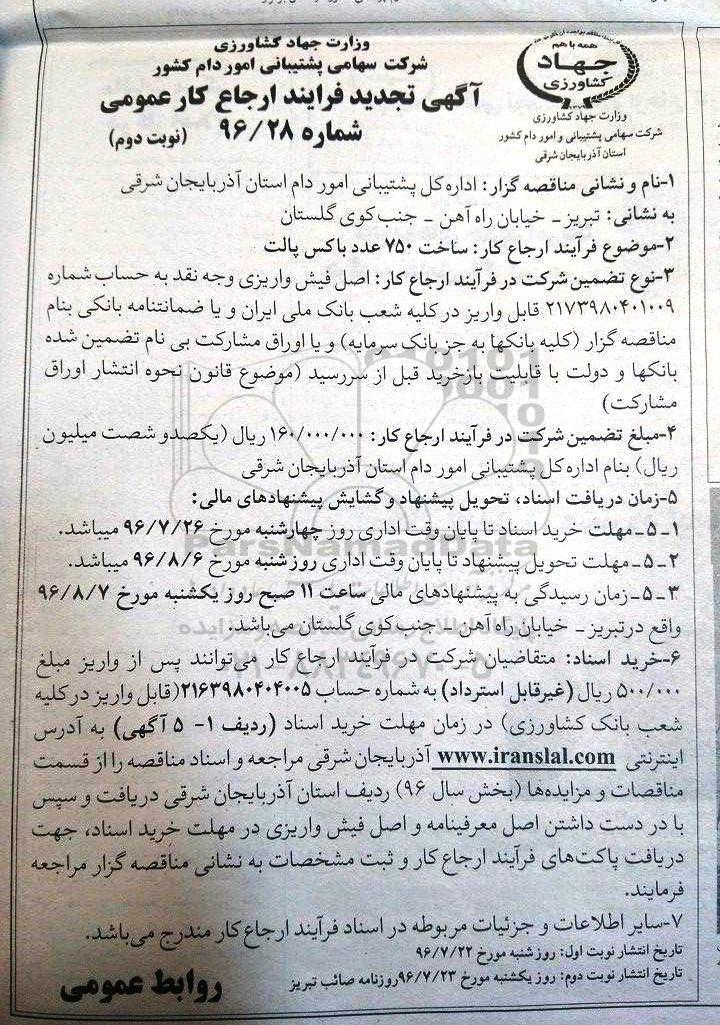 وزارت جهاد کشاورزی
شرکت سهامی پشتیبانی امور دام کشور
آگهی تجدید فرایند ارجاع کار عمومی
شماره ۹۶/۲۸ (نوبت دوم)
همه با هم
جهاد
کشاورزی
وزارت جهاد کشاورزی
شرکت سهامی پشتیبانی و امور دام کشور
استان آذربایجان شرقی
۱-نام و نشانی مناقصه گزار: اداره کل پشتیبانی امور دام استان آذربایجان شرقی
به نشانی: تبریز - خیابان راه آهن - جنب کوی گلستان
۲-موضوع فرآیند ارجاع کار: ساخت ۷۵۰ عدد باکس پالت
۳-نوع تضمین شرکت در فرآیند ارجاع کار: اصل فیش واریزی وجه نقد به حساب شماره
۲۱۷۳۹۸۰۴۰۱۰۰۹ قابل واریز در کلیه شعب بانک ملی ایران و یا ضمانتنامه بانکی بنام
مناقصه گزار (کلیه بانکها به جز بانک سرمایه) و یا اوراق مشارکت بی نام تضمین شده
بانکها و دولت با قابلیت بازخرید قبل از سررسید (موضوع قانون نحوه انتشار اوراق
مشارکت)
۴-مبلغ تضمین شرکت در فرآیند ارجاع کار: ۱۶۰/۰۰۰/۰۰۰ ریال (یکصدو شصت میلیون
ریال) بنام اداره کل پشتیبانی امور دام استان آذربایجان شرقی
۵-زمان دریافت اسناد، تحویل پیشنهاد و گشایش پیشنهادهای مالی:
۱-۵-مهلت خرید اسناد تا پایان وقت اداری روز چهارشنبه مورخ ۹۶/۷/۲۶ میباشد.
۲-۵-مهلت تحویل پیشنهاد تا پایان وقت اداری روز شنبه مورخ ۹۶/۸/۶ میباشد.
۳-۵-زمان رسیدگی به پیشنهادهای مالی ساعت ۱۱ صبح روز یکشنبه مورخ ۹۶/۸/۷
واقع در تبریز - خیابان راه آهن - جنب کوی گلستان می‌باشد.
۶-خرید اسناد: متقاضیان شرکت در فرآیند ارجاع کار می‌توانند پس از واریز مبلغ
۵۰۰/۰۰۰ ریال (غیرقابل استرداد) به شماره حساب ۲۱۶۳۹۸۰۴۰۴۰۰۵ (قابل واریز در کلیه
شعب بانک کشاورزی) در زمان مهلت خرید اسناد (ردیف ۱-۵ آگهی) به آدرس
اینترنتی www.iranslal.com آذربایجان شرقی مراجعه و اسناد مناقصه را از قسمت
مناقصات و مزایده‌ها (بخش سال ۹۶) ردیف استان آذربایجان شرقی دریافت و سپس
با در دست داشتن اصل معرفینامه و اصل فیش واریزی در مهلت خرید اسناد، جهت
دریافت پاکت‌های فرآیند ارجاع کار و ثبت مشخصات به نشانی مناقصه گزار مراجعه
فرمایند.
۷-سایر اطلاعات و جزئیات مربوطه در اسناد فرآیند ارجاع کار مندرج می‌باشد.
تاریخ انتشار نوبت اول: روز شنبه مورخ ۹۶/۷/۲۲
تاریخ انتشار نوبت دوم: روز یکشنبه مورخ ۹۶/۷/۲۳ روزنامه صائب تبریز
روابط عمومی
ParsNamadData